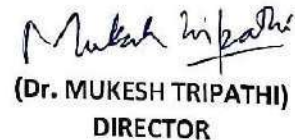 Mukesh Tripathi
(Dr. MUKESH TRIPATHI)
DIRECTOR